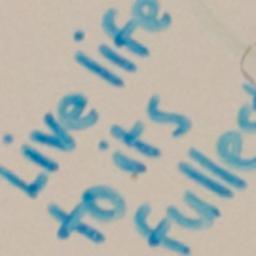 Live life
to its
fulle